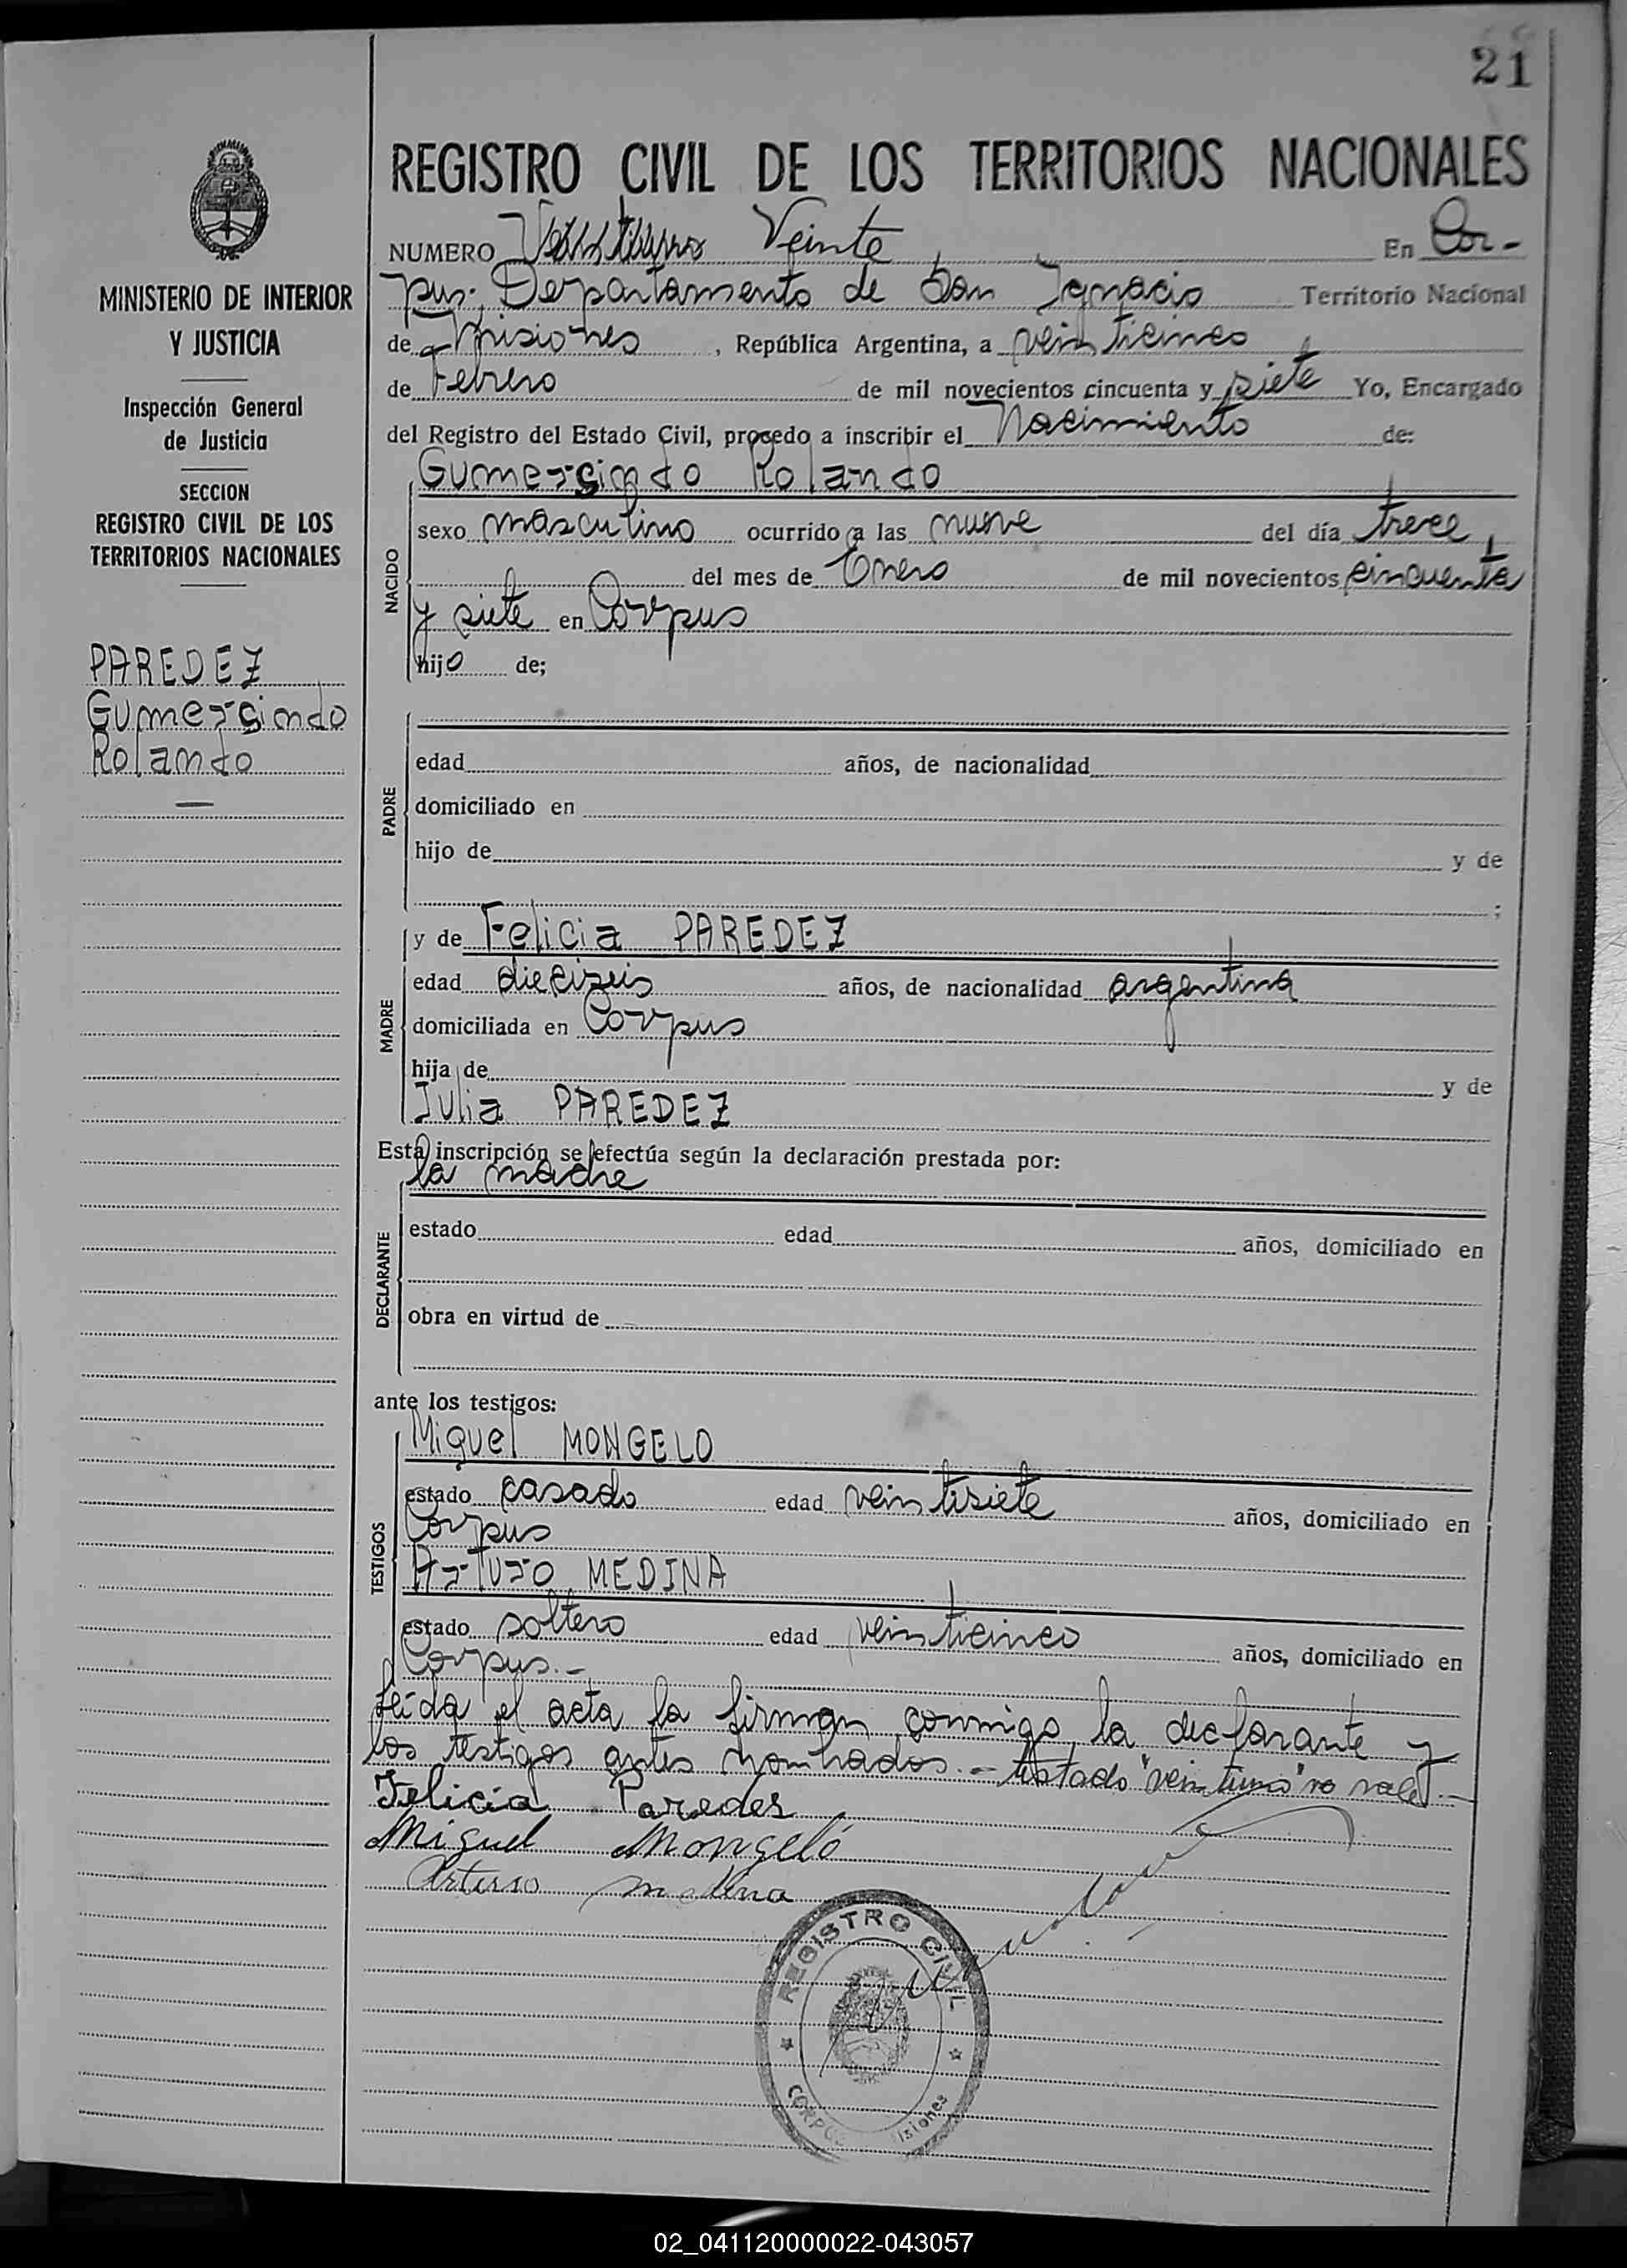 21
REGISTRO CIVIL DE LOS TERRITORIOS NACIONALES
NUMERO Veintiuno Veinte En Cor-
pus. Departamento de San Ignacio Territorio Nacional
de Misiones, República Argentina, a veinticinco
de Febrero de mil novecientos cincuenta y siete Yo, Encargado
del Registro del Estado Civil, procedo a inscribir el Nacimiento de:
MINISTERIO DE INTERIOR
Y JUSTICIA
Inspección General
de Justicia
SECCION
REGISTRO CIVIL DE LOS
TERRITORIOS NACIONALES
PAREDEZ
Gumersindo
Rolando
NACIDO
Gumersindo Rolando
sexo masculino ocurrido a las nueve del día trece,
del mes de Enero de mil novecientos cincuenta
y siete en Corpus
hijo de;
PADRE
edad años, de nacionalidad
domiciliado en
hijo de y de
;
MADRE
y de Felicia PAREDEZ
edad dieciseis años, de nacionalidad argentina
domiciliada en Corpus
hija de y de
Julia PAREDEZ
Esta inscripción se efectúa según la declaración prestada por:
la madre
DECLARANTE
estado edad años, domiciliado en
obra en virtud de
ante los testigos:
TESTIGOS
Miguel MONGELO
estado casado edad veintisiete años, domiciliado en
Corpus
Arturo MEDINA
estado soltero edad veinticinco años, domiciliado en
Corpus.-
leída el acta la firman conmigo la declarante y
los testigos antes nombrados.- testado "veintiuno" no vale.-
Felicia Paredes
Miguel Mongeló
Arturo medina
REGISTRO CIVIL
CORPUS isiones
02_041120000022-043057